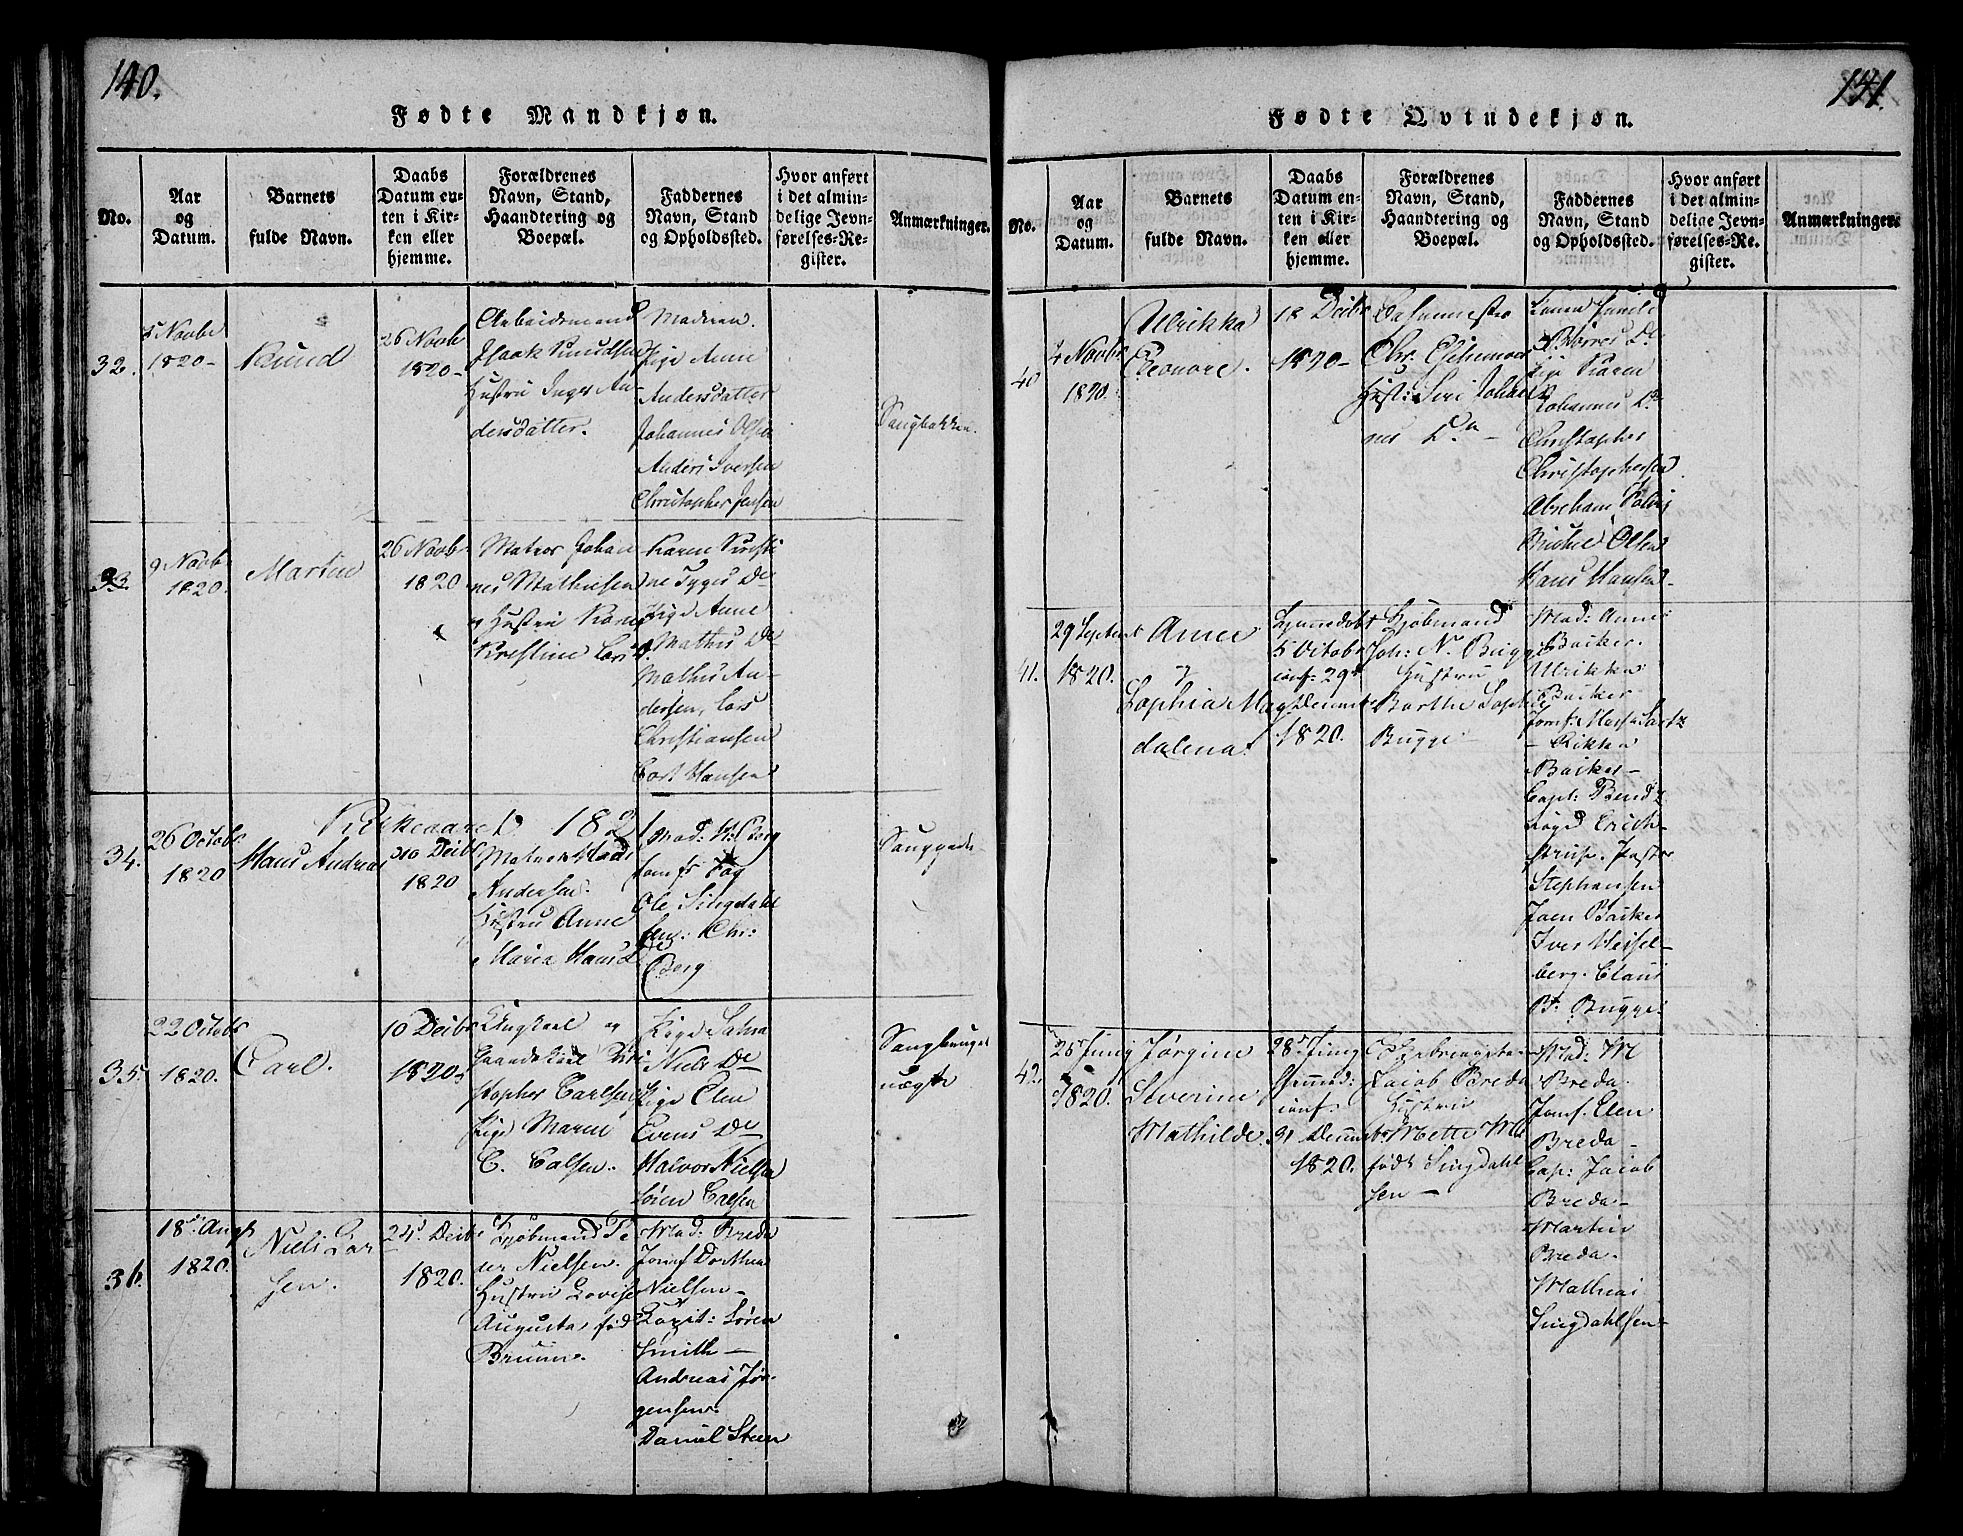 140.
Fødte Mandkjøn.
No.
Aar og Datum.
Barnets fulde Navn.
Daabs Datum enten i Kirken eller hjemme.
Forældrenes Navn, Stand, Haandtering og Boepæl.
Faddernes Navn, Stand og Opholdssted.
Hvor anført i det almindelige Jevnførelses-Register.
Anmærkninger.
32.
5 Novbr
1820-
Knud
26 Novb
1820-
Arbeidsmand
Isaak Knudsen
Hustru Inger An
dersdatter.
Madren.
Pige Anne
Andersdatter
Johannes Olsen
Anders Iversen
Christopher Jensen
Saugbakken.
33
9 Novb
1820.
Martin
26 Novbr
1820
Matros Johan
nes Mathiesen
Hustru Karen
Kirstine Lars D
Karen Kirsti
ne Tyges De
Pige Anne
Mathis De
Mathis An-
dersen, Lars
Christiansen
Hansen
Kirkeaaret 1821
34.
26 Octobr
1820
Hans Andreas
10 Deibr
1820
Matros Mads
Andersen.
Hustru Anne
Maria Hans De
Mad: K: Berg
Jomfr Fog
Ole Singdahl
sen: Chr:
Berg
35.
22 Octobr
1820.
Carl.
10 Deibr
1820
Ungkarl og
Haandskarl Chri
stopher Carlsen
Pige Maren
C. Calsen.
Pige
Niels De
Pige Elen
Evens De
Halvor Nielsen
Sören Calsen
36.
18' Augst
1820.
Niels Lar
sen.
24' Deibr
1820.
Kjøbmand Pe
ter Nielsen.
Hustru Lovise
Augusta, fød
Bruun.
Mad: Breda
Jomf Dorthea
Nielsen-
Sören
Smith-
Andreas Jör-
gensen.
Daniel Steen
141.
Fødte Qvindekjøn.
No.
Aar og Datum.
Barnets fulde Navn.
Daabs Datum enten i Kirken eller hjemme.
Forældrenes Navn, Stand, Haandtering og Boepæl.
Faddernes Navn, Stand og Opholdssted.
Hvor anført i det almindelige Jevnførelses-Register.
Anmærkninger
40
4 Novbr
1820.
Ulrikka
Eleonore.
12 Deibr
1820-
Chr.
Hust: Siri Johan
nes Da-
Karen
Johannes D.
Christopher
Christophersen
Abraham
Michel Olsen
Hans Hansen-
41.
29 Septembr
1820.
Anne
Sophia Mag
dalena.
Hjemedöbt
5 Octobr
conf: 29
Decemb
1820.
Kjøbmand
Joh: N. Bugge
Hustru
Barthe Sophie
Bugge
Mad: Anne
Backer.
Ulrikka
Backer
Jomf:
- Rikka
Backer-
Capt: Bendz
Foged Erich-
strup. Pastor
Stephansen
Joen Backer
Iver Heisel-
berg. Claus
B: Bugge.
42.
25' Junij
1820.
Jørgine
Severine
Mathilde.
28' Junij
conf:
31 Decemb
1820.
Jacob Breda
Hustru
Mette M
født Singdahl
sen-
Mad: M
Breda.
Jomf. Elen
Breda-
Cap: Jacob
Breda-
Martin
Breda.
Mathias
Singdahlsen-